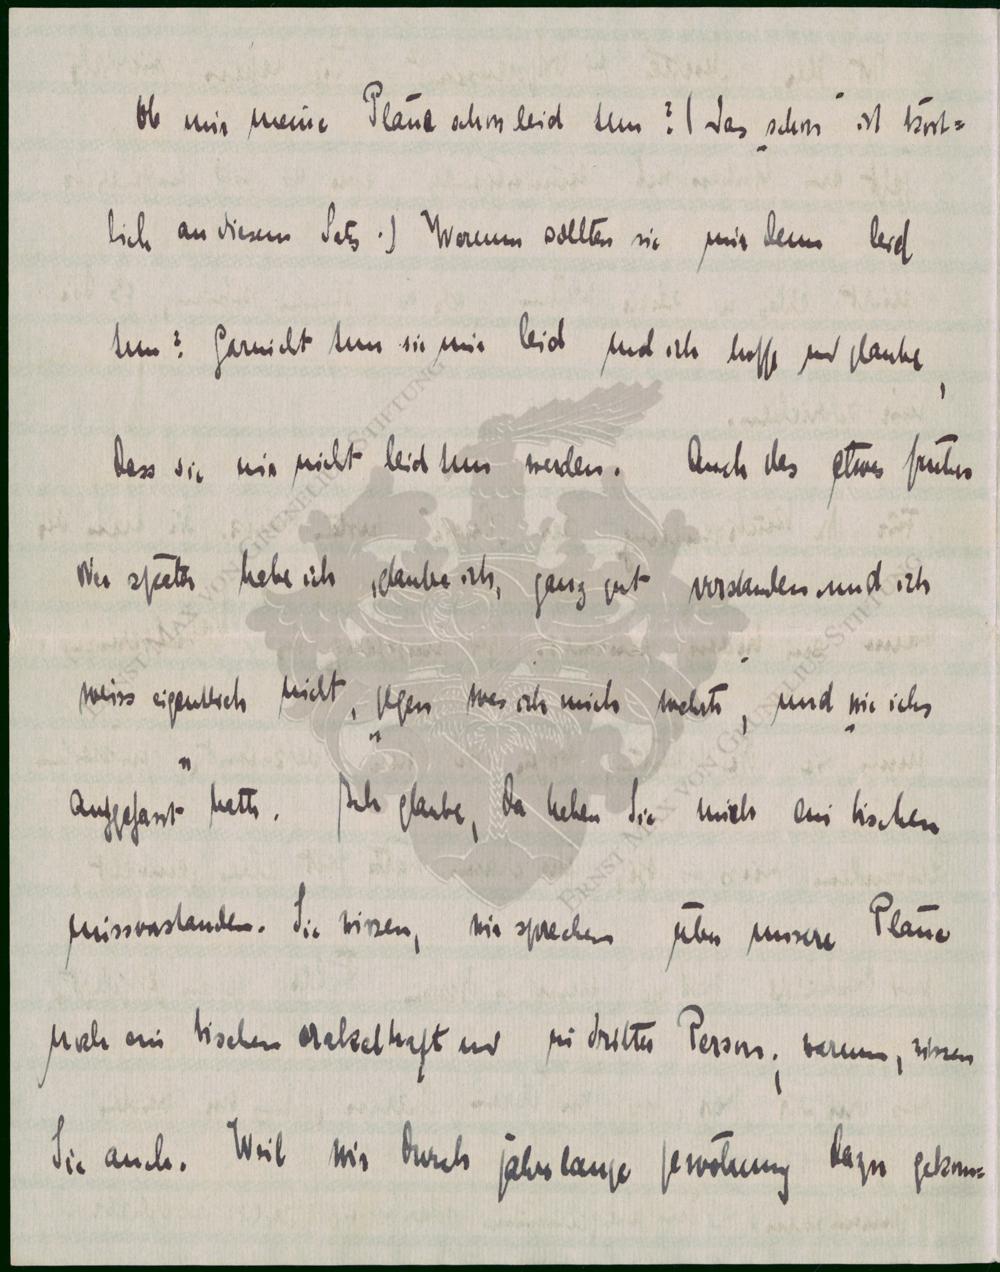 Ob mir meine Pläne schon leid tun?! (Das schon ist köst=
lich an diesem Satz.) Warum sollten sie mir denn leid
tun? Garnicht tun sie mir leid und ich hoffe und glaube,
dass sie mir nicht leid tun werden. Auch das etwas früher
oder später habe ich, glaube ich, ganz gut verstanden und ich
weiss eigentlich nicht, gegen was ich mich wehrte, und wie ichs
aufgefasst hätte. Ich glaube, da haben Sie mich ein bischen
missverstanden. Sie wissen, wir sprechen über unsere Pläne
noch ein bischen orakelhaft und in dritter Person; warum, wissen
Sie auch. Weil wir durch jahrelange Gewöhnung dazu gekom=
ERNST MAX VON GRUNELIUS STIFTUNG
ERNST MAX VON GRUNELIUS STIFTUNG